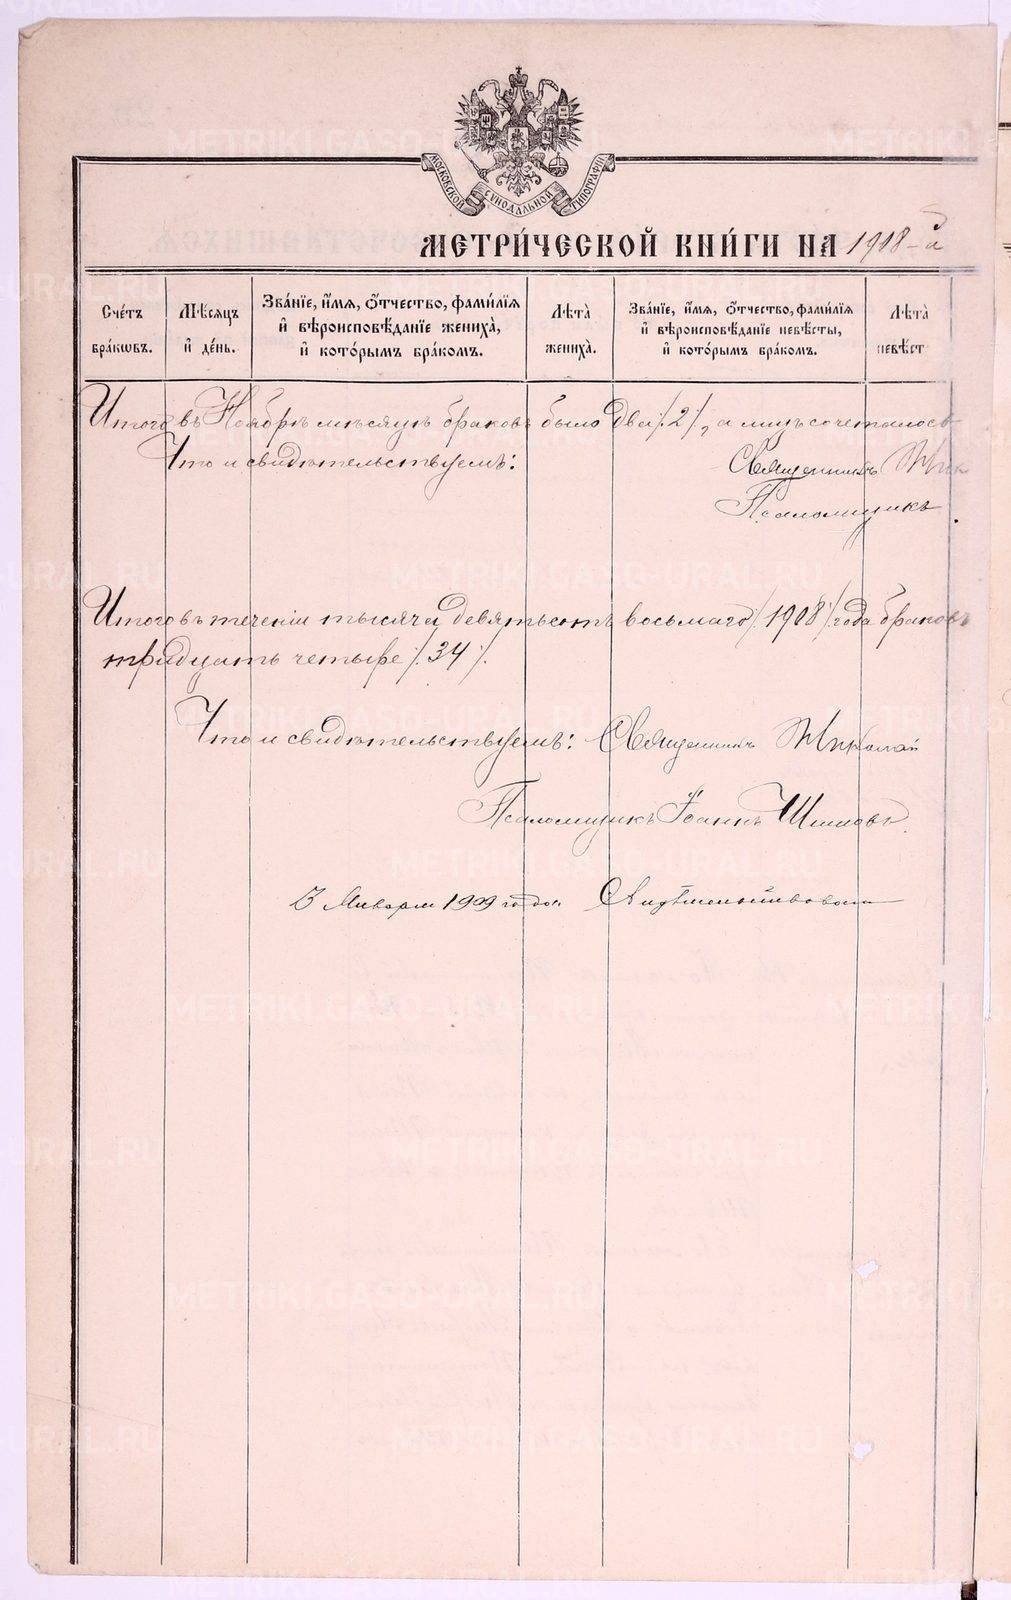 МОСКОВСКОЙ СѴНОДАЛЬНОЙ ТИПОГРАФІИ
МЕТРИ́ЧЕСКОЙ КНИ́ГИ НА 1908-й
Сче́тъ бра́кѡвъ.
Мѣ́сяцъ и҆ де́нь.
Зва́нїе, и҆́мѧ, ѻ҆́тчество, фами́лїѧ
и҆ вѣроисповѣ́данїе жениха̀,
и҆ кото́рымъ бра́комъ.
Лѣ́та жениха̀.
Зва́нїе, и҆́мѧ, ѻ҆́тчество, фами́лїѧ
и҆ вѣроисповѣ́данїе невѣ́сты,
и҆ кото́рымъ бра́комъ.
Лѣ́та невѣ́ст
Итого въ Ноябрѣ мѣсяцѣ браковъ было два /2/, а лицъ сочеталось
Что и свидѣтельствуемъ: Священникъ Ник
Псаломщикъ
Итого въ теченіи тысяча девятьсотъ восьмаго /1908/ года браковъ
тридцать четыре /34/.
Что и свидѣтельствуемъ: Священникъ Николай
Псаломщикъ Іоаннъ Шишовъ.
3 Января 1909 года Свидѣтельствовалъ
METRIKI.GASO-URAL.RU